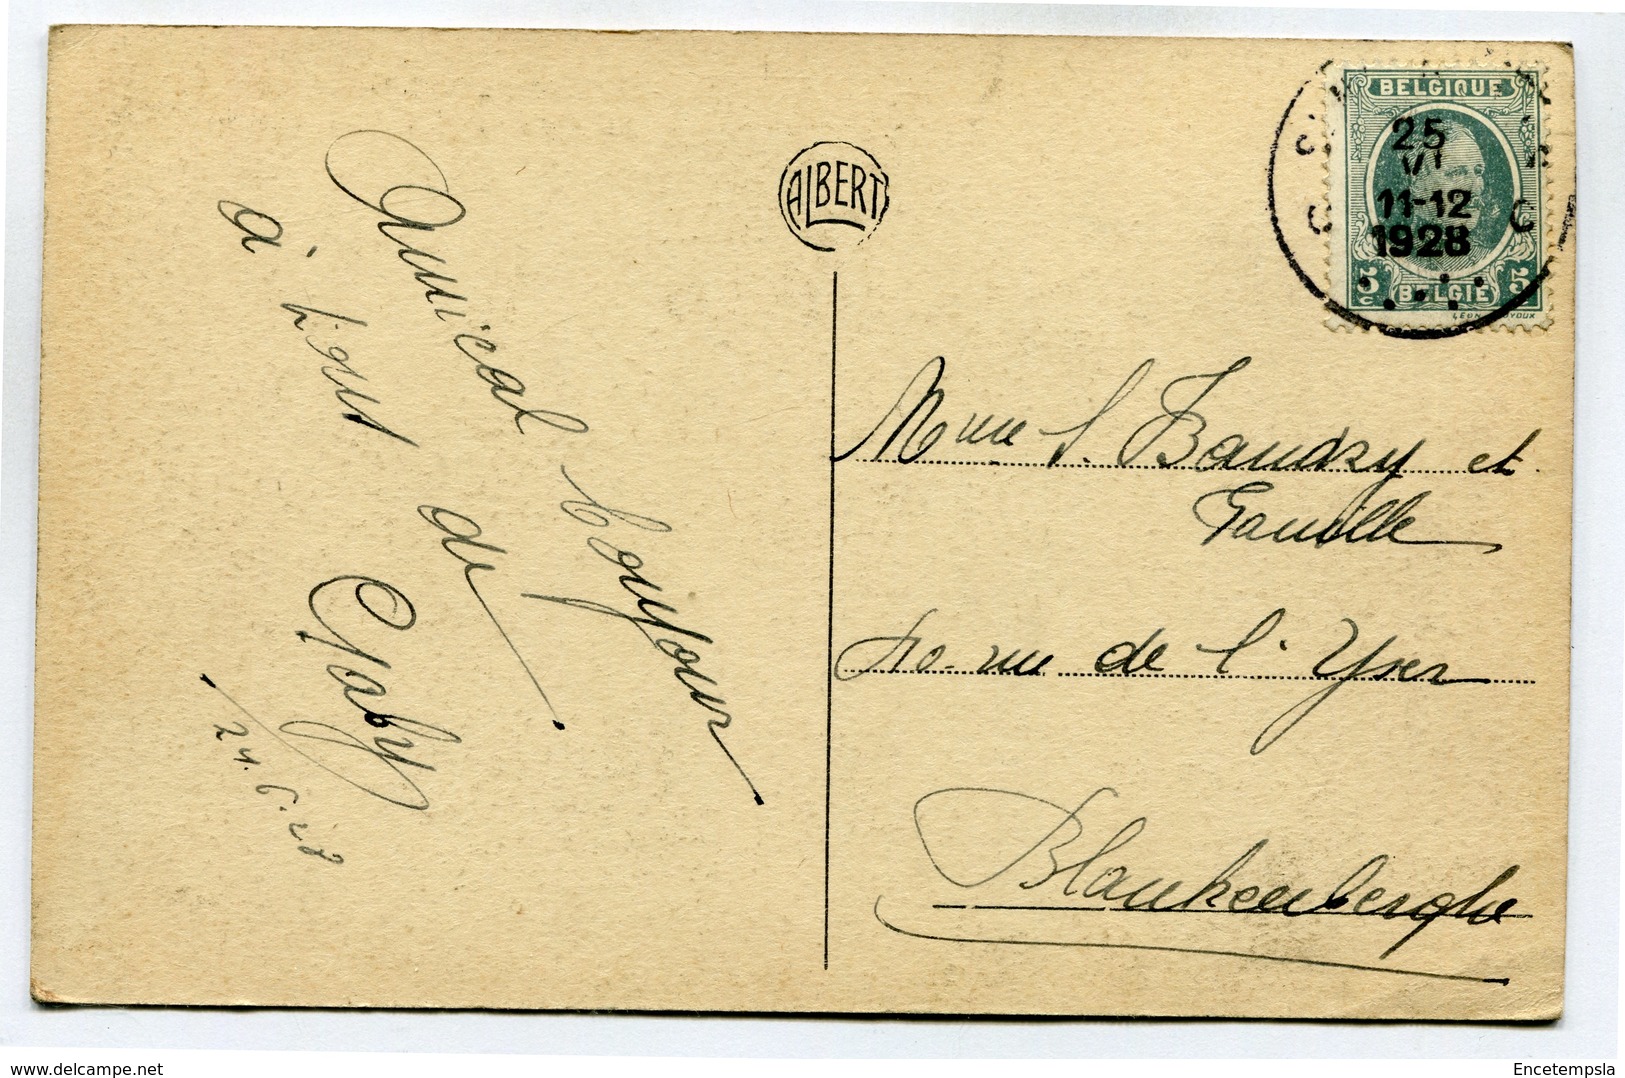 Amical bonjour
à tous de
Gaby
24.6.28
ALBERT
BELGIQUE
25
VI
11-12
1928
5c BELGIE 5c
Mme S. Baudry et
Famille
rue de l'Yser
Blankenberghe
Encetempsla